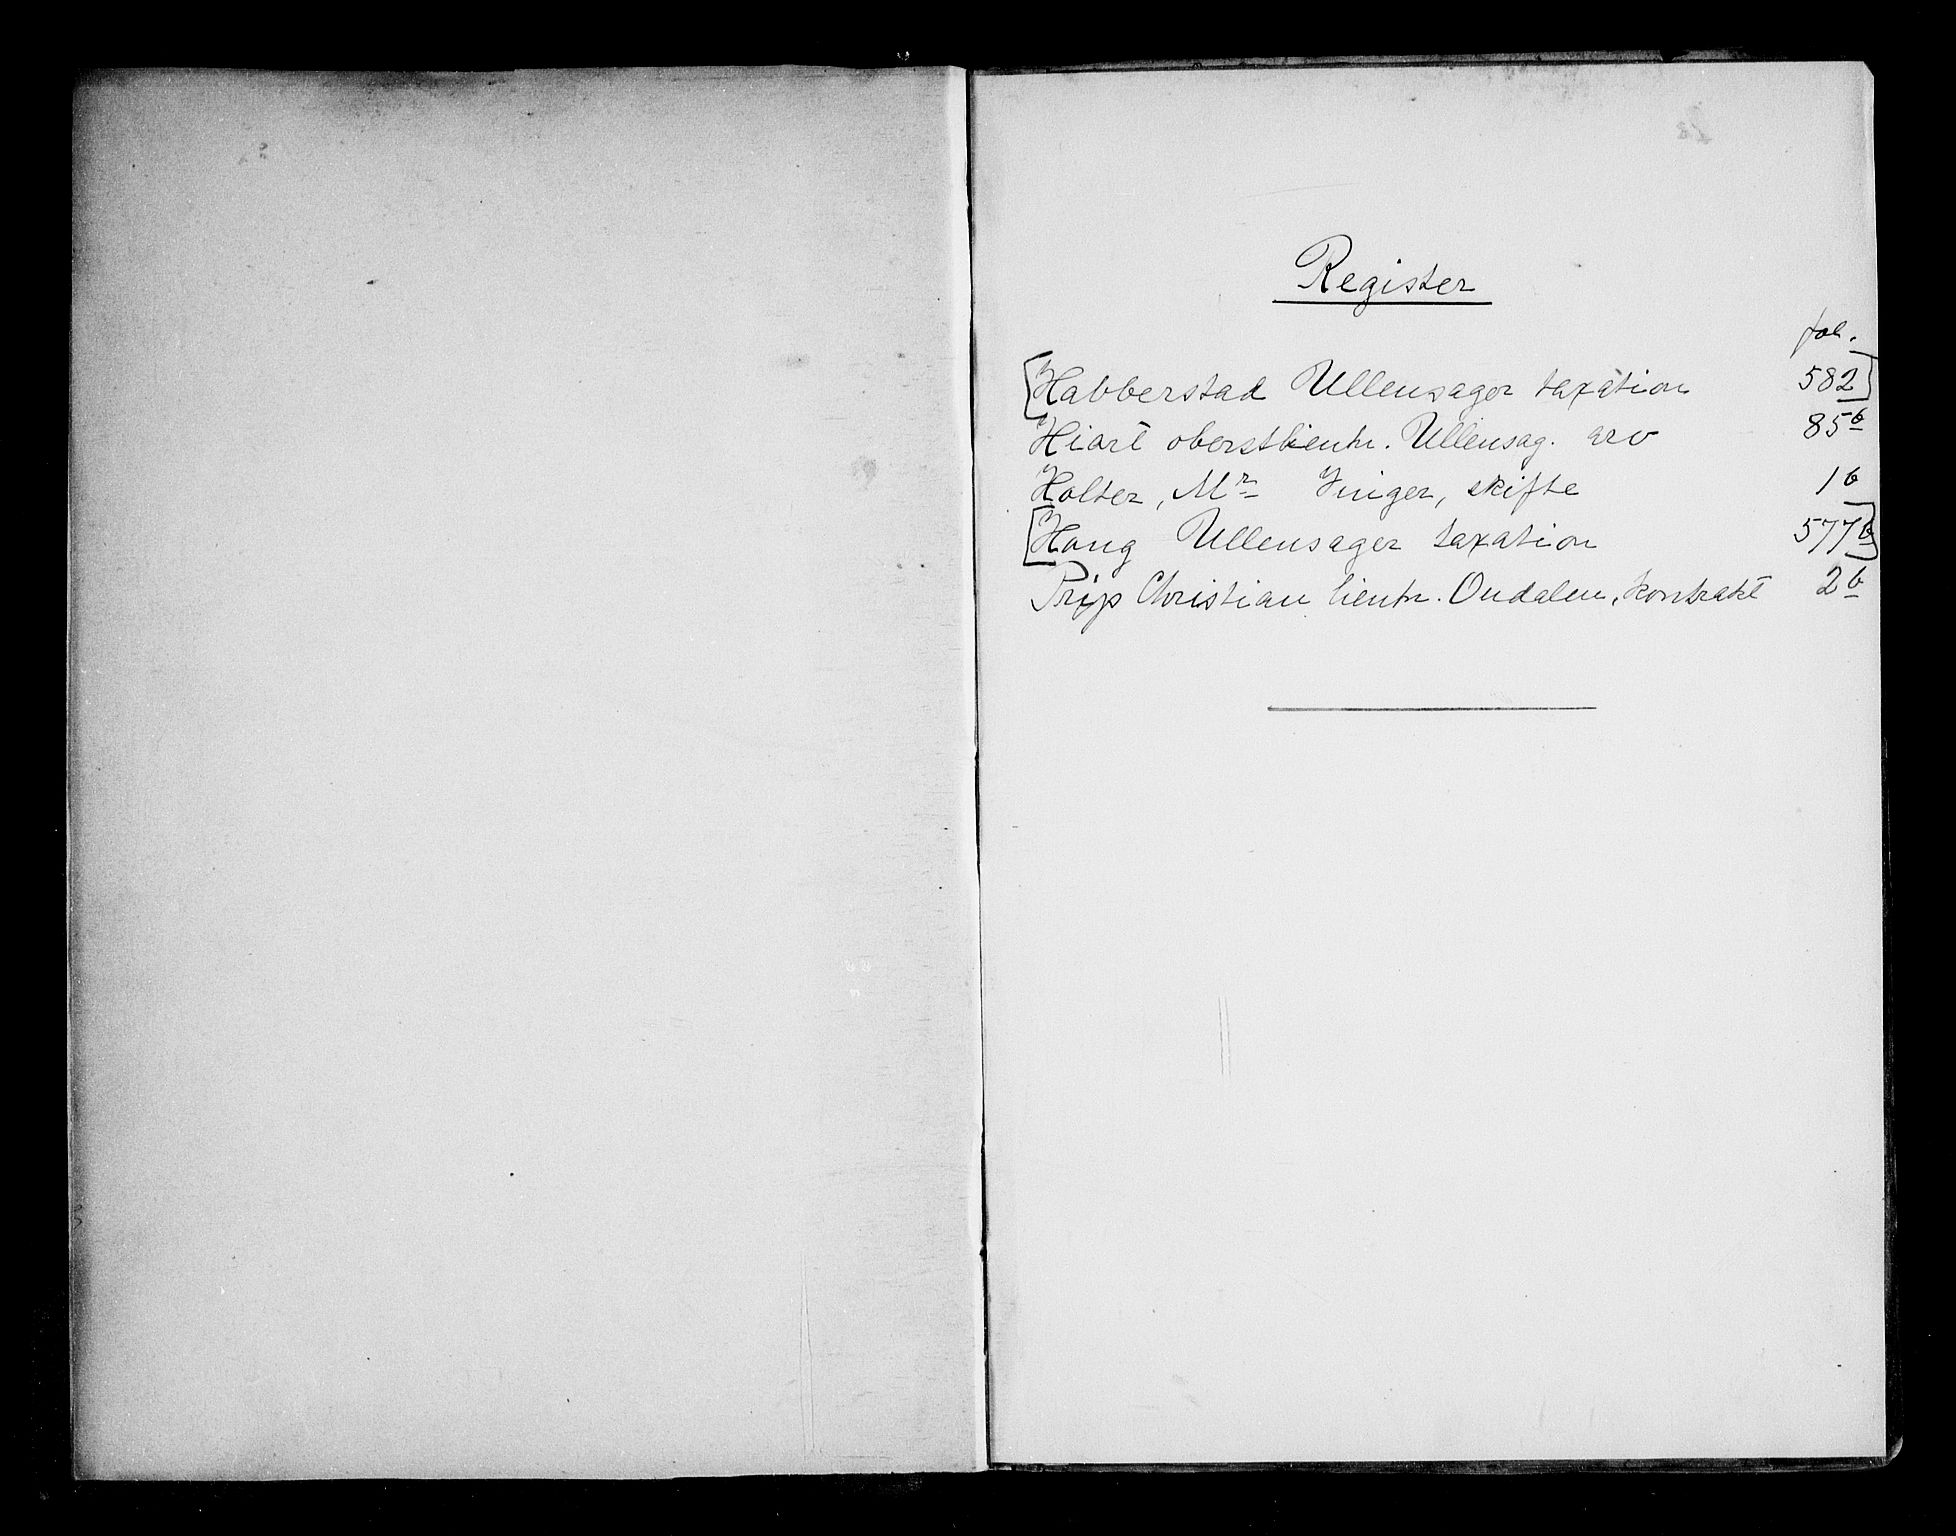 Register
fol.
[Habberstad Ullensager taxation 582]
Hiort oberstlieutn. Ullensag. arv 85b
Holter, Mr Vinger, skifte 1b
[Houg Ullensager taxation 577b]
Prip Christian lieutn. Oudalen, kontrakt 2b